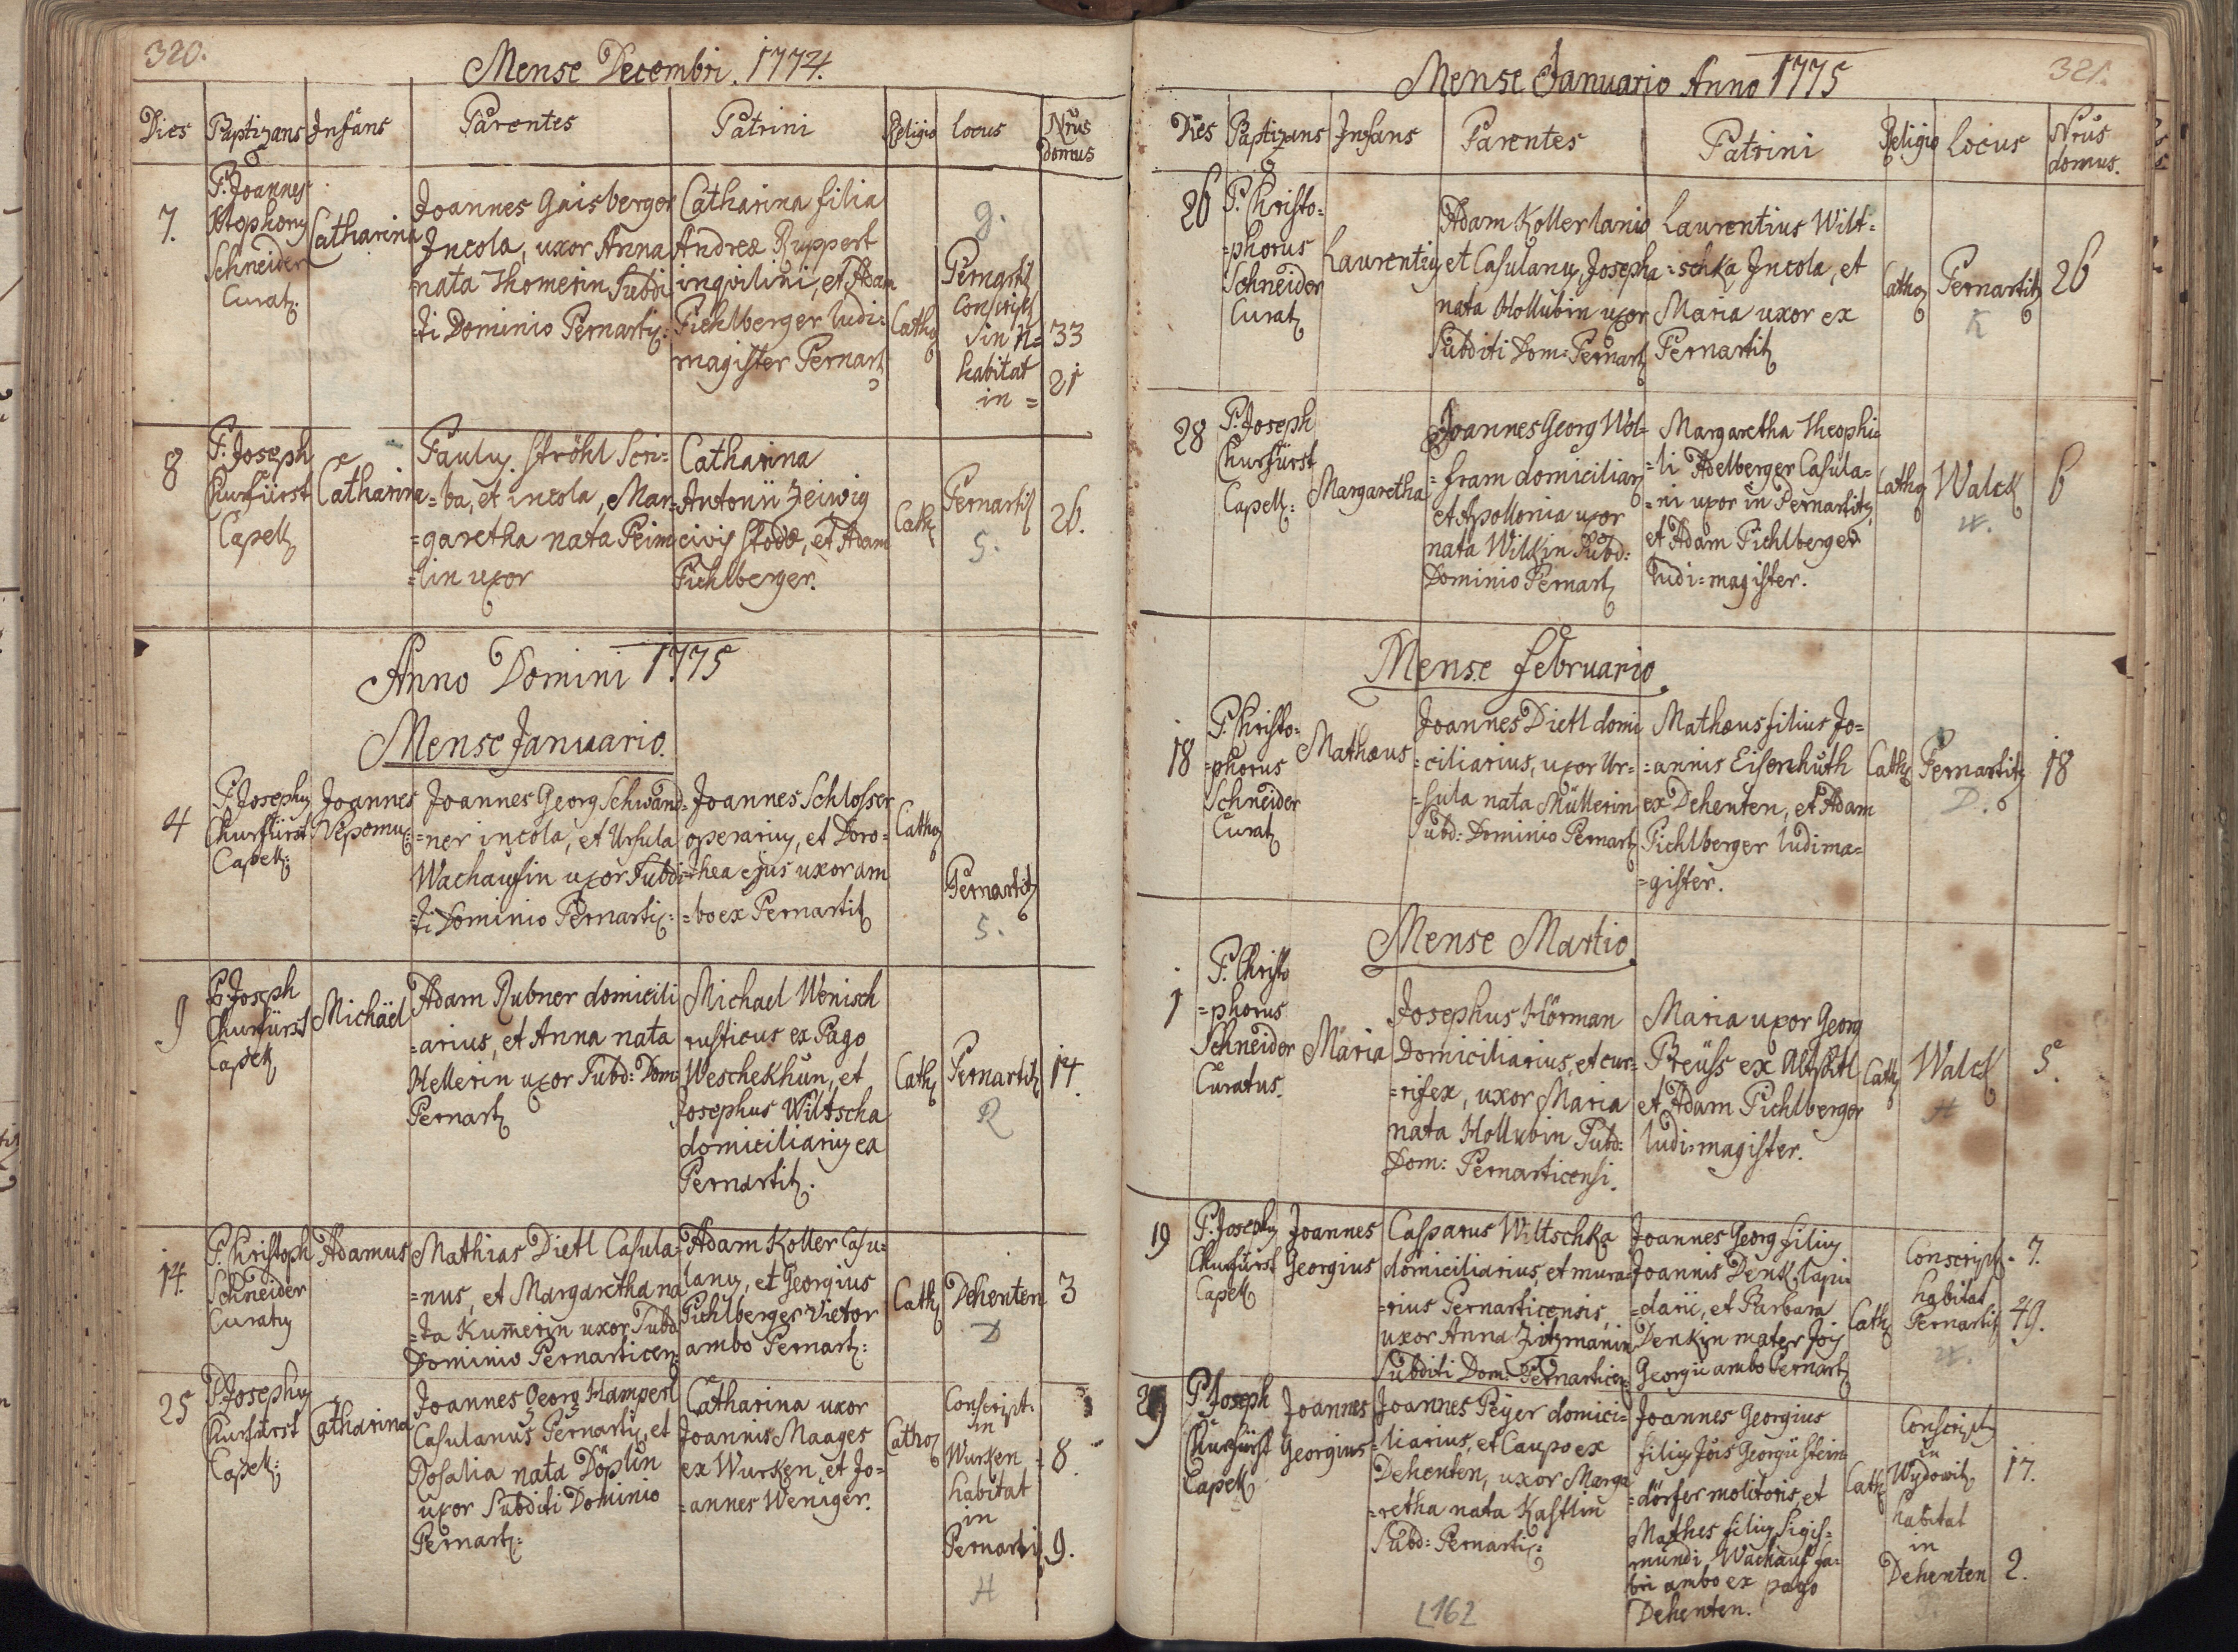 320.
Mense Decembri. 1774.
Dies Baptizans Infans Parentes Patrini Religio locus Nrus domus
7.
P. Joannes
Schneider
Curat:
Catharina
Joannes Gaisberger
Incola, uxor Anna
nata Thomerin Subdi
=ti Dominio Pernartiz:
Catharina filia
Andreæ Ruppert
inquilini, et Adam
Pichlberger ludi=
magister Pernart
Cath
g.
Pernartiz
Conscript
in N= 33
habitat
in = 21
8
P. Joseph
Churfürst
Capell
Catharina
Pauly Ströhl Scri=
=ba, et incola, Mar=
=garetha nata Peim
=lin uxor
Catharina
Antonii Zeiwig
civis Stodæ, et Adam
Pichlberger.
Cath
Pernartiz
S.
26.
Anno Domini 1775
Mense Januario.
4
P. Josephus
Churfürst
Capell:
Joannes
Nepomu:
Joannes Georg Schwand=
=ner incola, et Ursula
Wachaufin uxor Subdi
=ti Dominio Pernartiz:
Joannes Schlosser
operarius, et Doro=
=thea ejus uxor am
=bo ex Pernartiz
Catho
Pernartiz
S.
9
P. Joseph
Churfürst
Capell
Michäel
Adam Rubner domicili
=arius, et Anna nata
Hellerin uxor Subd: Dom:
Pernart
Michael Wenisch
rusticus ex Pago
Weschekhun, et
Josephus Wiltscha
domiciliarius ex
Pernartiz.
Cath
Pernartiz
R
14.
14.
P. Christoph
Schneider
Curatus
Adamus
Mathias Dietl Casula=
=nus, et Margaretha na
=ta Kumerin uxor Subd
Dominio Pernarticen:
Adam Koller Casu=
lanus, et Georgius
Pichlberger Vietor
ambo Pernart:
Cath
Dehenten
D
3
25
P. Josephus
Churfürst
Capell:
Catharina
Joannes Georg Hamperl
Casulanus Pernartiz, et
Rosalia nata Döplin
uxor Subditi Dominio
Pernart:
Catharina uxor
Joannis Maages
ex Wurken, et Jo=
=annes Weniger.
Cathol
Conscript.
in
Wurken = 8.
habitat
in
Pernartiz 9.
H
321.
Mense Januario Anno 1775
Dies Baptizans Infans Parentes Patrini Religio Locus Nrus domus.
26
P. Christo=
=phorus
Schneider
Curat
Laurentius
Adam Koller lanio
et Casulanus, Josepha
nata Hollubin uxor
Subditi Dom: Pernart
Laurentius Wilt=
=schka Incola, et
Maria uxor ex
Pernartiz
Catho
Pernartiz
K
26
28
P. Joseph
Churfürst
Capell:
Margaretha
Joannes Georg Wol=
=fram domiciliar
et Apollonia uxor
nata Wilkin Subd:
Dominio Pernart
Margaretha Theophi=
=li Adelberger Casula=
=ni uxor in Pernartiz,
et Adam Pichlberger
ludi=magister.
Catho
Walck
W.
6
Mense Februario.
18
P. Christo=
=phorus
Schneider
Curat
Mathæus
Joannes Dietl domi
=ciliarius, uxor Ur=
=sula nata Müllerin
Subd: Dominio Pernart
Mathæus filius Jo=
=annis Eisenhuth
ex Dehenten, et Adam
Pichlberger ludima=
=gister.
Cath
Pernartiz
D.
18
Mense Martio.
1
P. Christo
=phorus
Schneider
Curatus.
Maria
Josephus Hörman
Domiciliarius, et cur=
=rifex, uxor Maria
nata Hollubin Subd:
Dom: Pernarticensi.
Maria uxor Georg
Preüss ex
et Adam Pichlberger
ludi=magister.
Cath
Walck
H
5.
19
P. Josephus
Churfürst
Capell
Joannes
Georgius
Casparus Wiltschka
domiciliarius, et mura=
=rius Pernarticensis,
uxor Anna Zitzmanin
Subditi Dom: Pernarticen:
Joannes Georg filius
Joannis Denk lapi=
=darii, et Barbara
Denkin mater Jois
Georgii ambo Pernart
Cath
Conscript. 7.
habitat
Pernartiz 49.
W.
P. Joseph
Churfürst
Capell
Joannes
Georgius
Joannes Peijer domici=
=liarius, et Caupo ex
Dehenten, uxor Marga
=retha nata Kastlin
Subd: Pernartiz:
Joannes Georgius
filius Jois Georgii Stein
=dörfer molitoris, et
Mathes filius Sigis=
=mundi Wachauf fa=
bri ambo ex pago
Dehenten.
Cath
Conscript
in
Wydowitz 17.
habitat
in
Dehenten 2.
L162